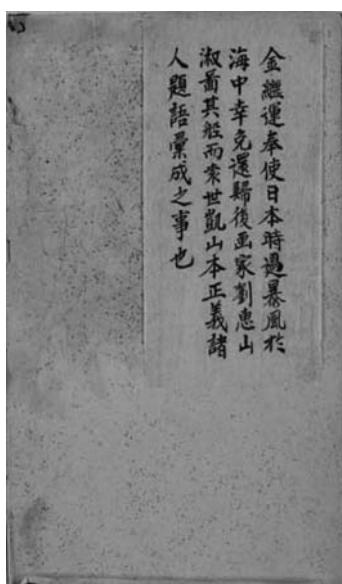 金繼運奉使日本時過暴風於
海中幸免還歸後画家劉惠山
淑畵其舩而袁世凱山本正義諸
人題語彙成之事也